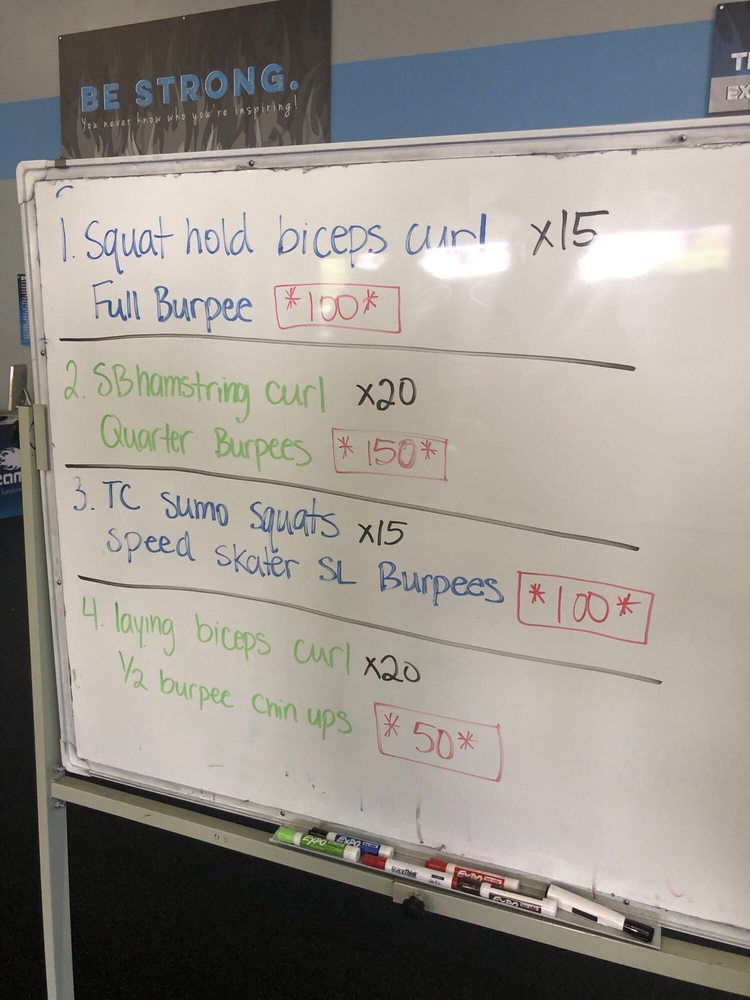 BE STRONG.
You never know who you're inspiring!
EX
1. Squat hold biceps curl x15
Full Burpee *100*
2. SB hamstring curl x20
Quarter Burpees *150*
3. TC sumo squats x15
speed skater SL Burpees *100*
4. laying biceps curl x20
1/2 burpee chin ups *50*
EXPO
EXPO
EXPO
EXPO